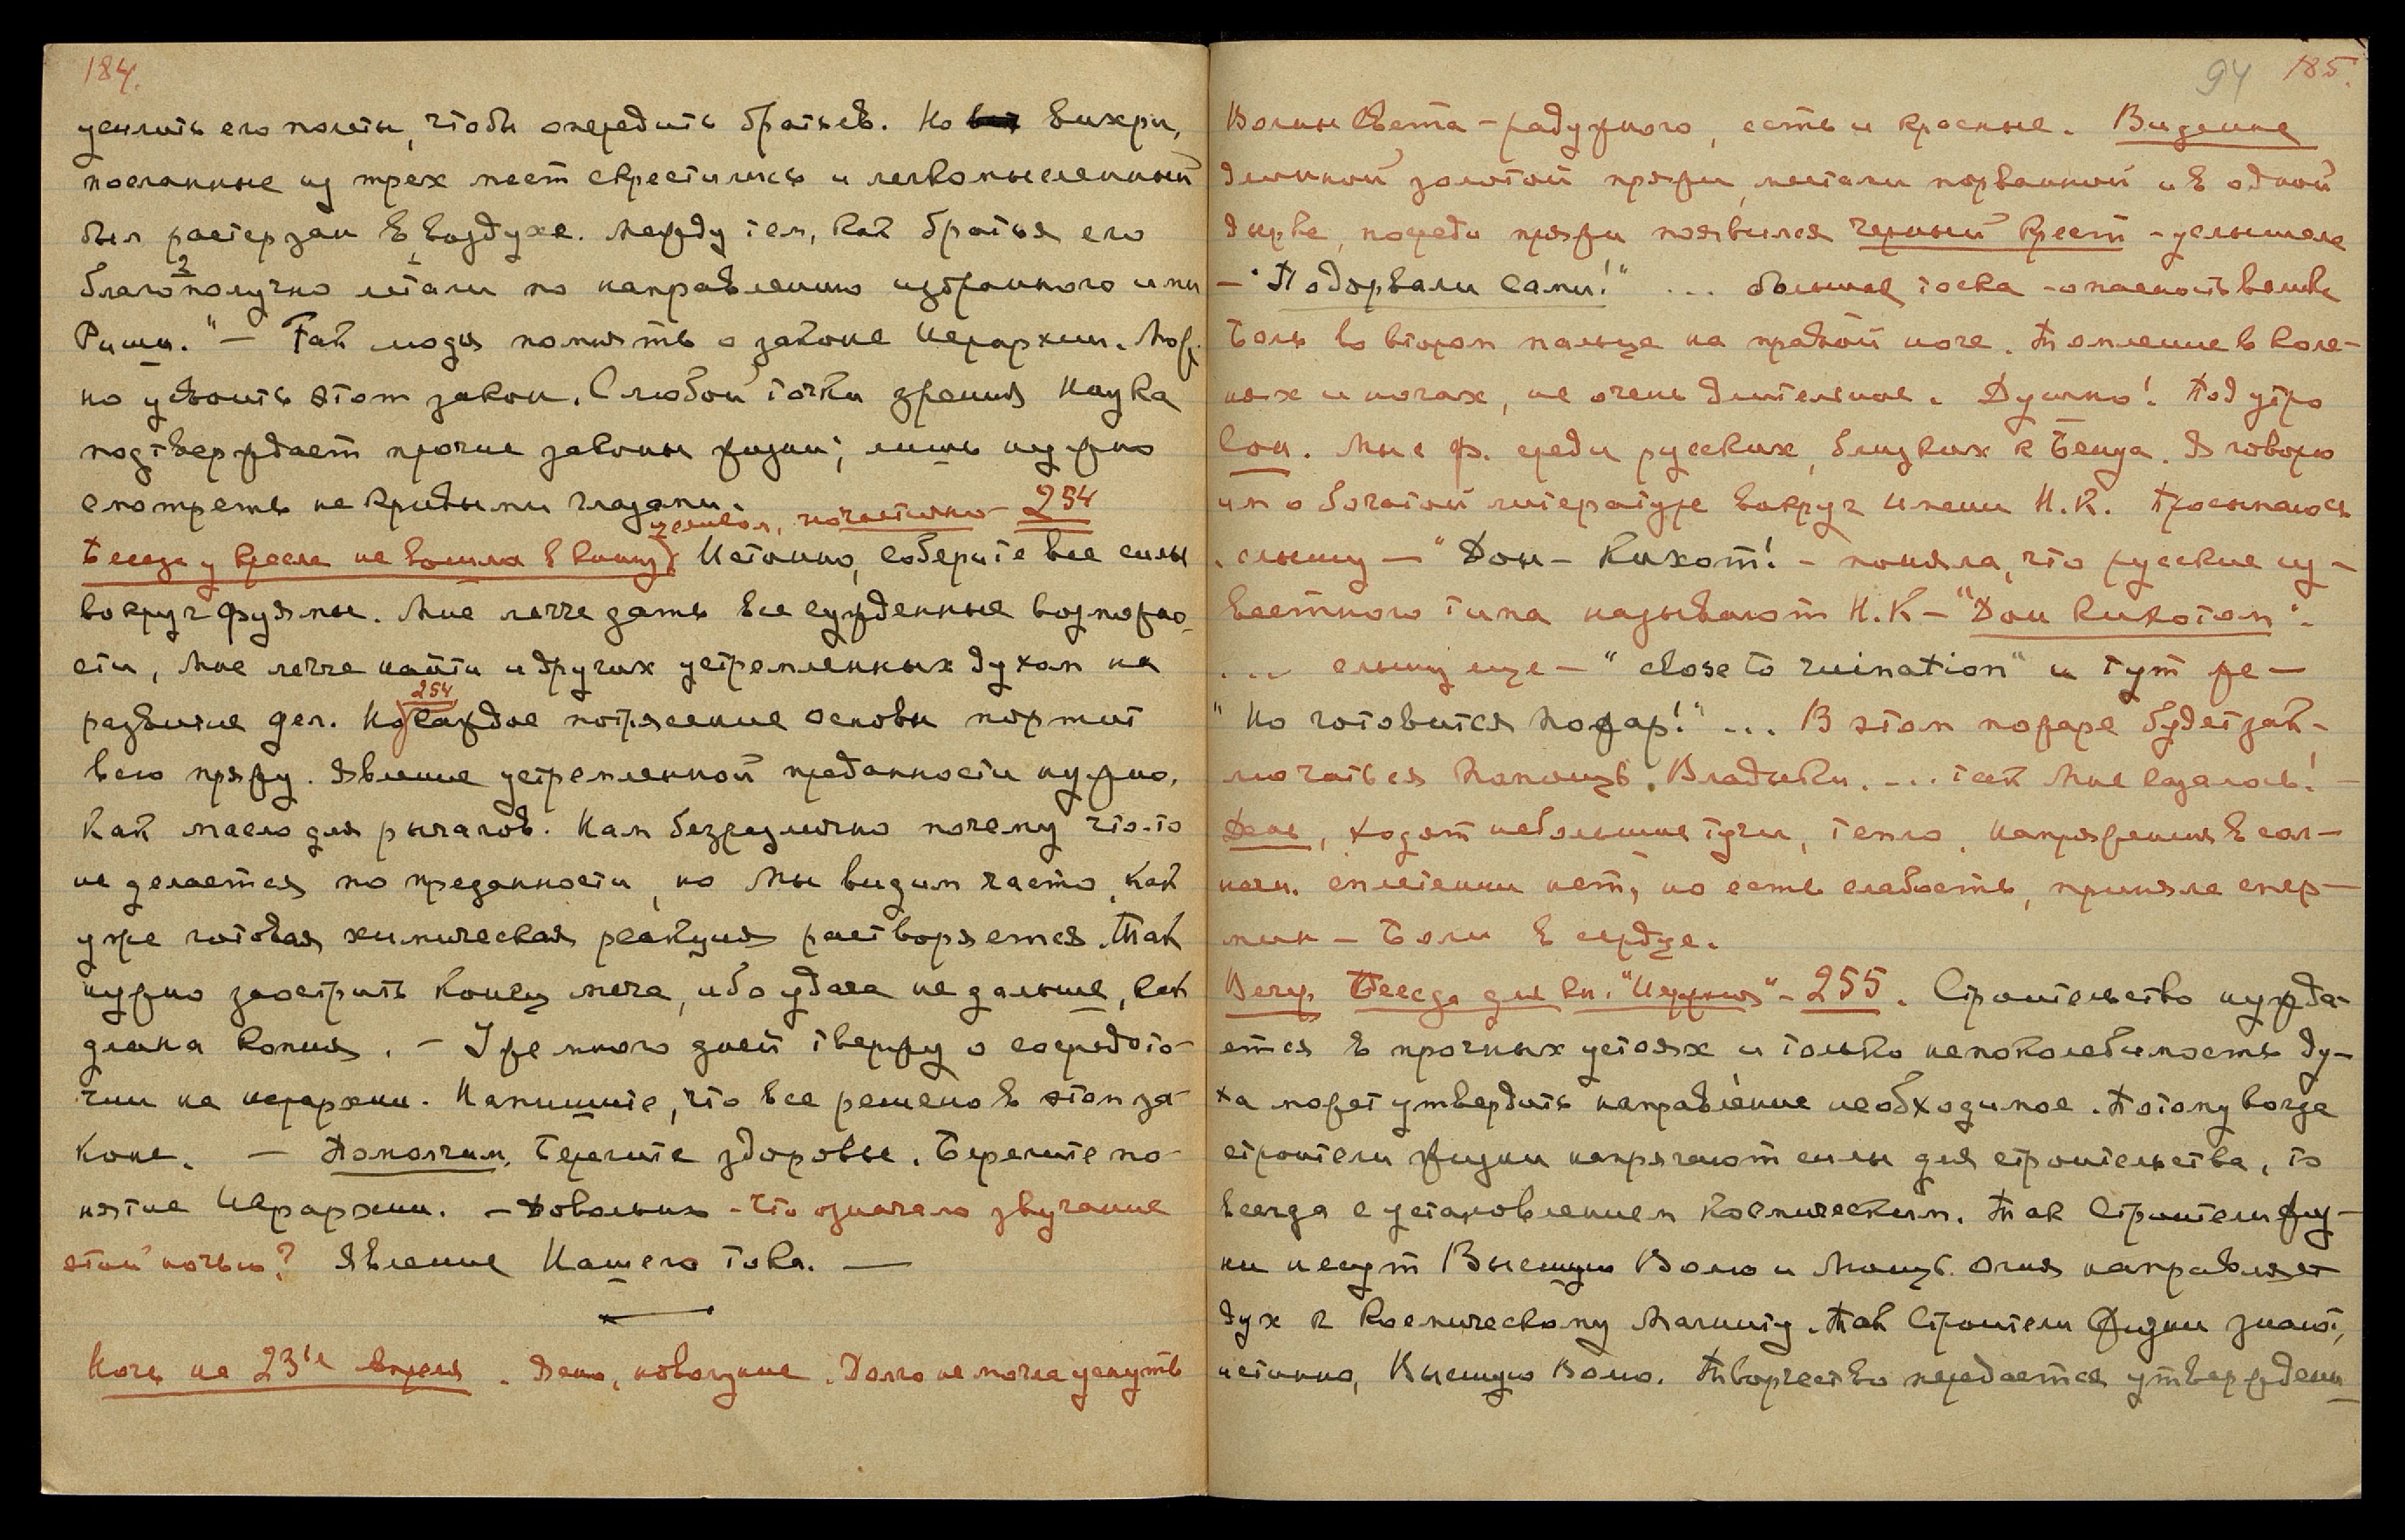 184.
усилить его полеты, чтобы опередить братьев. Но вихри,
посланные из трех мест скрестились и легкомысленный
был растерзан в воздухе. Между тем, как братья его
благополучно летали по направлению избранного ими
Риши." — Так люди помнят о законе Иерархии. Мож-
но усвоить этот закон. С любой точки зрения наука
подтверждает прочие законы жизни; лишь нужно
смотреть не кривыми глазами.
частично 254
Беседа у кресла не вошла в книгу) Истинно, соберите все силы
вокруг фуямы. Мне легче дать все сужденные возможно-
сти, Мне легче найти и других устремленных духом на
254
развитие дел. Но каждое потрясение основы портит
всю пряжу. Явление устремленной преданности нужно,
как масло для рычагов. Нам безразлично почему что-то
не делается по преданности, но Мы видим часто, как
уже готовая химическая реакция растворяется. Так
нужно заострить конец меча, ибо удача не дальше, как
длина копья. — Уже много дней твержу о сосредото-
чии на иерархии. Напишите, что все решено в этом за-
коне. — Помолчим. Берегите здоровье. Берегите по-
нятие Иерархии. — Довольно - Что означало звучание
этой ночью? Явление Нашего тока. —
Ночь на 23'е Апреля. Ясно, новолуние. Долго не могла уснуть
94 185.
Волны Света - радужного, есть и красные. Видение
длинной золотой пряжи, местами порванной и в одной
дырке, посреди пряжи появился черный крест - услышала
— "Подорвали сами!" ... большая тоска - опасность велика
Боль во втором пальце на правой ноге. Томление в коле-
нях и ногах, не очень длительное. Душно! Под утро
Сон. Мы с Ф. среди русских, близких к Бенуа. Я говорю
им о богатой литературе вокруг имени Н.К. Просыпаюсь
. слышу — "Дон-Кихот! - поняла, что русские из-
вестного типа называют Н.К - "Дон Кихотом".
... слышу еще — "close to ruination" и тут же —
"Но готовится пожар!" ... В этом пожаре будет зак-
лючаться помощь Владыки. ... так Мне сдалось! —
День, ходят небольшие тучи, тепло, напряжения в сол-
нечн. сплетении нет, но есть слабость, приняла спер-
мин - Боли в сердце.
Вечер Беседа для кн. "Иерархия" - 255. Строительство нужда-
ется в прочных устоях и только непоколебимость ду-
ха может утвердить направление необходимое. Потому когда
строители жизни напрягают силы для строительства, то
всегда с установлением космическим. Так Строители жиз-
ни несут Высшую Волю и Мощь. Огня направляет
дух к космическому Магниту. Так Строители Жизни знают,
истинно, Высшую Волю. Творчество передается утвержден